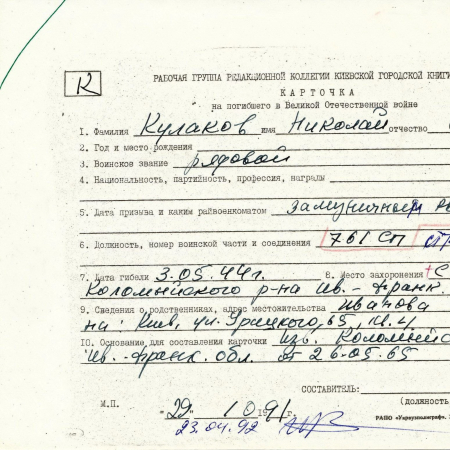 К
РАБОЧАЯ ГРУППА РЕДАКЦИОННОЙ КОЛЛЕГИИ КИЕВСКОЙ ГОРОДСКОЙ КНИГИ
КАРТОЧКА
на погибшего в Великой Отечественной войне
1. Фамилия Кулаков имя Николай отчество
2. Год и место рождения
3. Воинское звание рядовой
4. Национальность, партийность, профессия, награды
5. Дата призыва и каким райвоенкоматом
6. Должность, номер воинской части и соединения 761 СП
7. Дата гибели 3.05.44г. 8. Место захоронения с
Коломыйского р-на Ив.-Франк.
9. Сведения о родственниках, адрес местожительства Иванова
на: Киев, ул. Урицкого 65, кв. 4
10. Основание для составления карточки изв. Коломыйс
Ив.-Франк. обл. от 26.05.65
СОСТАВИТЕЛЬ:
(ДОЛЖНОСТЬ,
М.П. "29" 10 1991г.
23.04.92
РАПО «Укрвузполиграф».